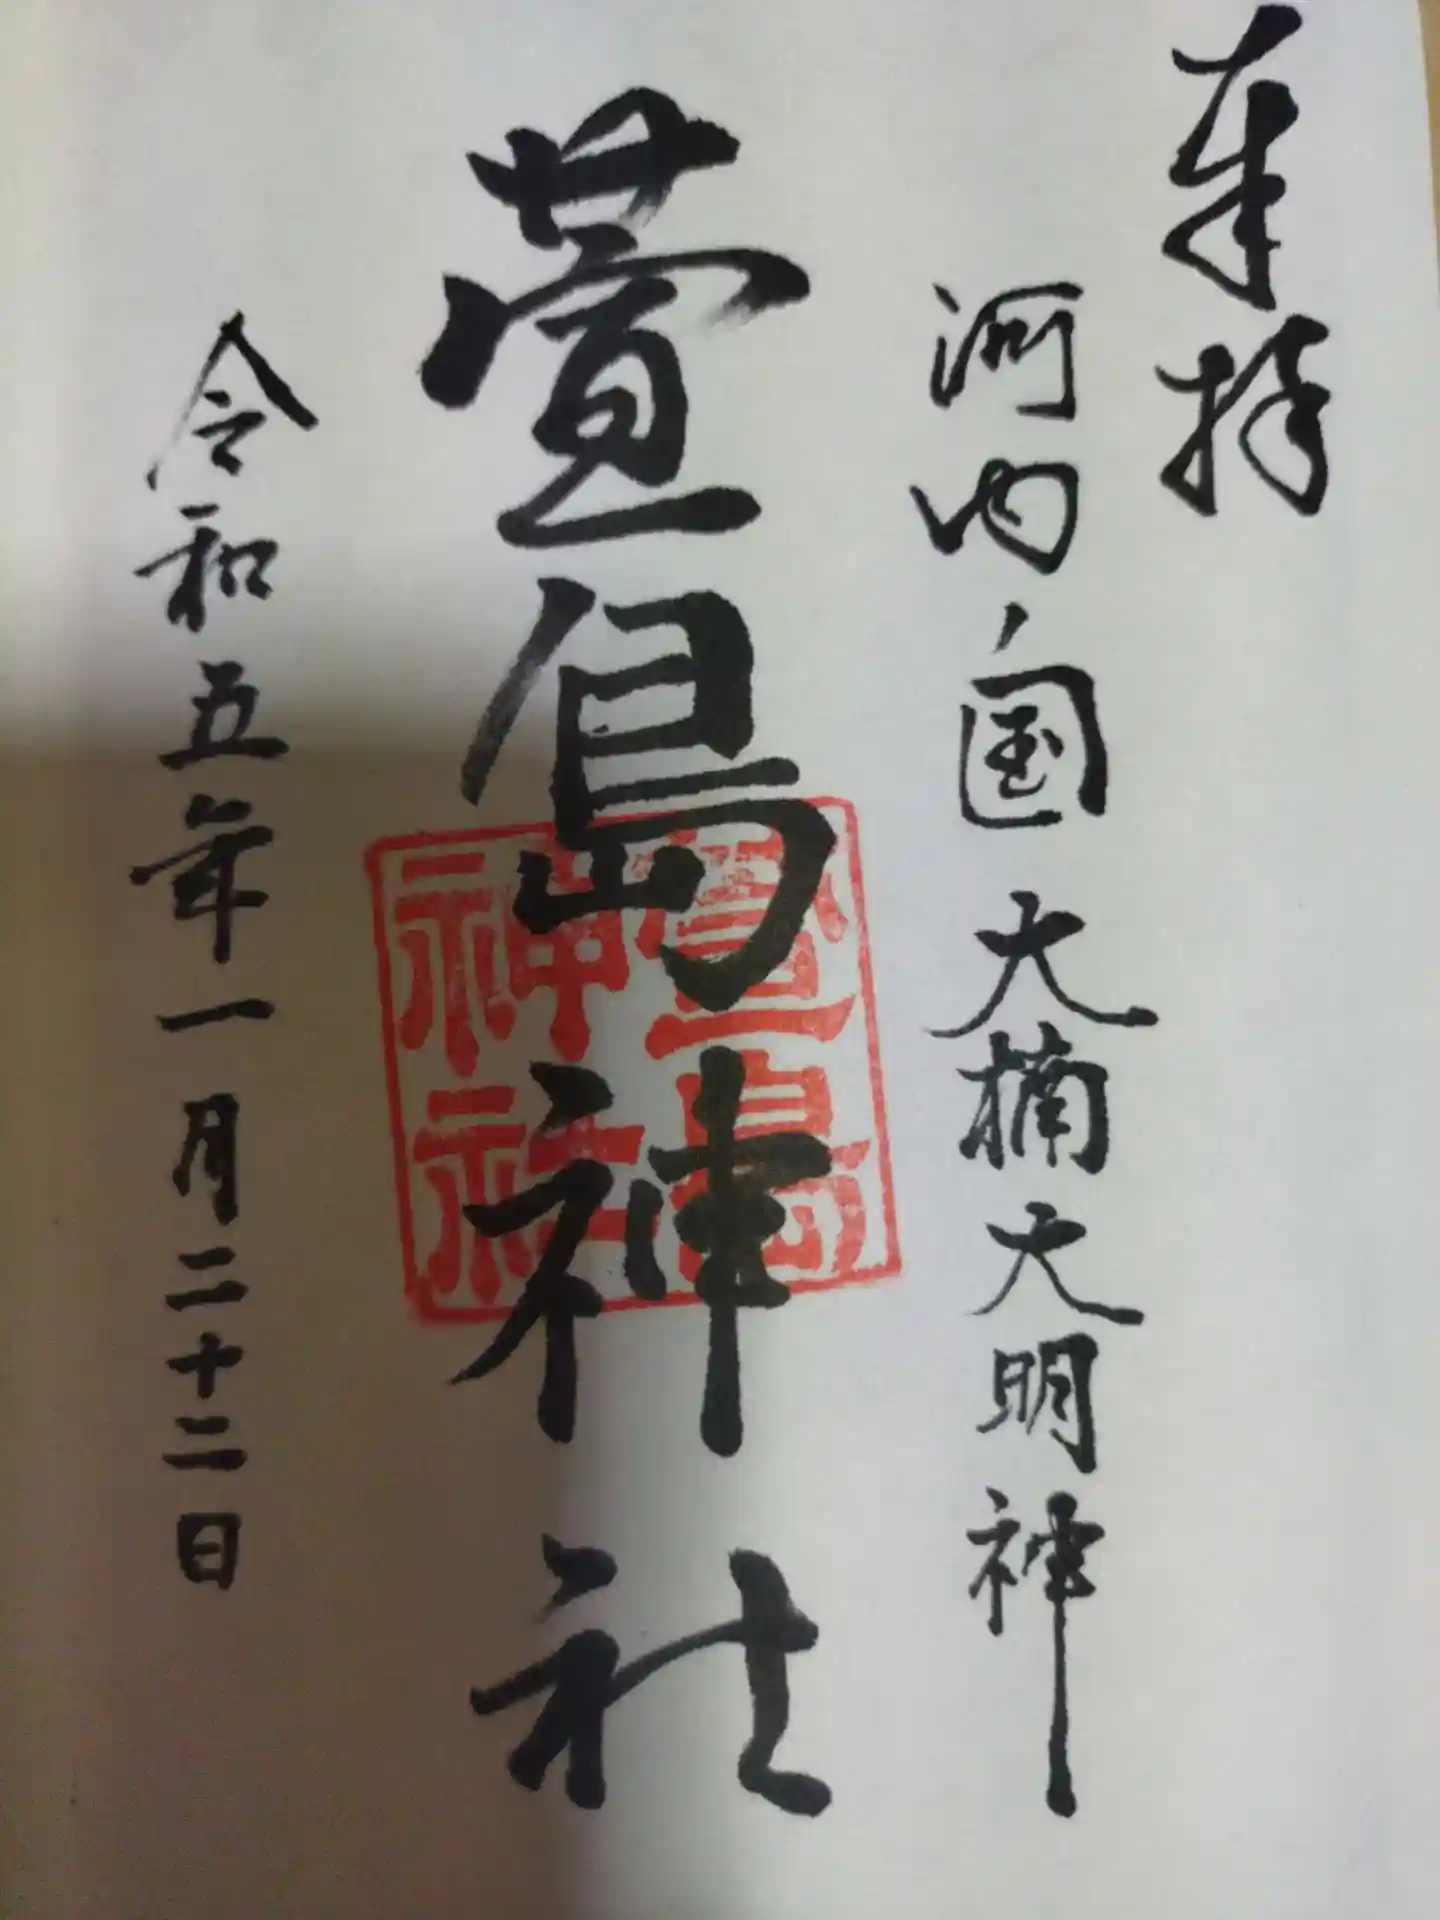 奉拝
河内国 大楠大明神
萱島神社
萱島
神社
令和五年一月二十二日